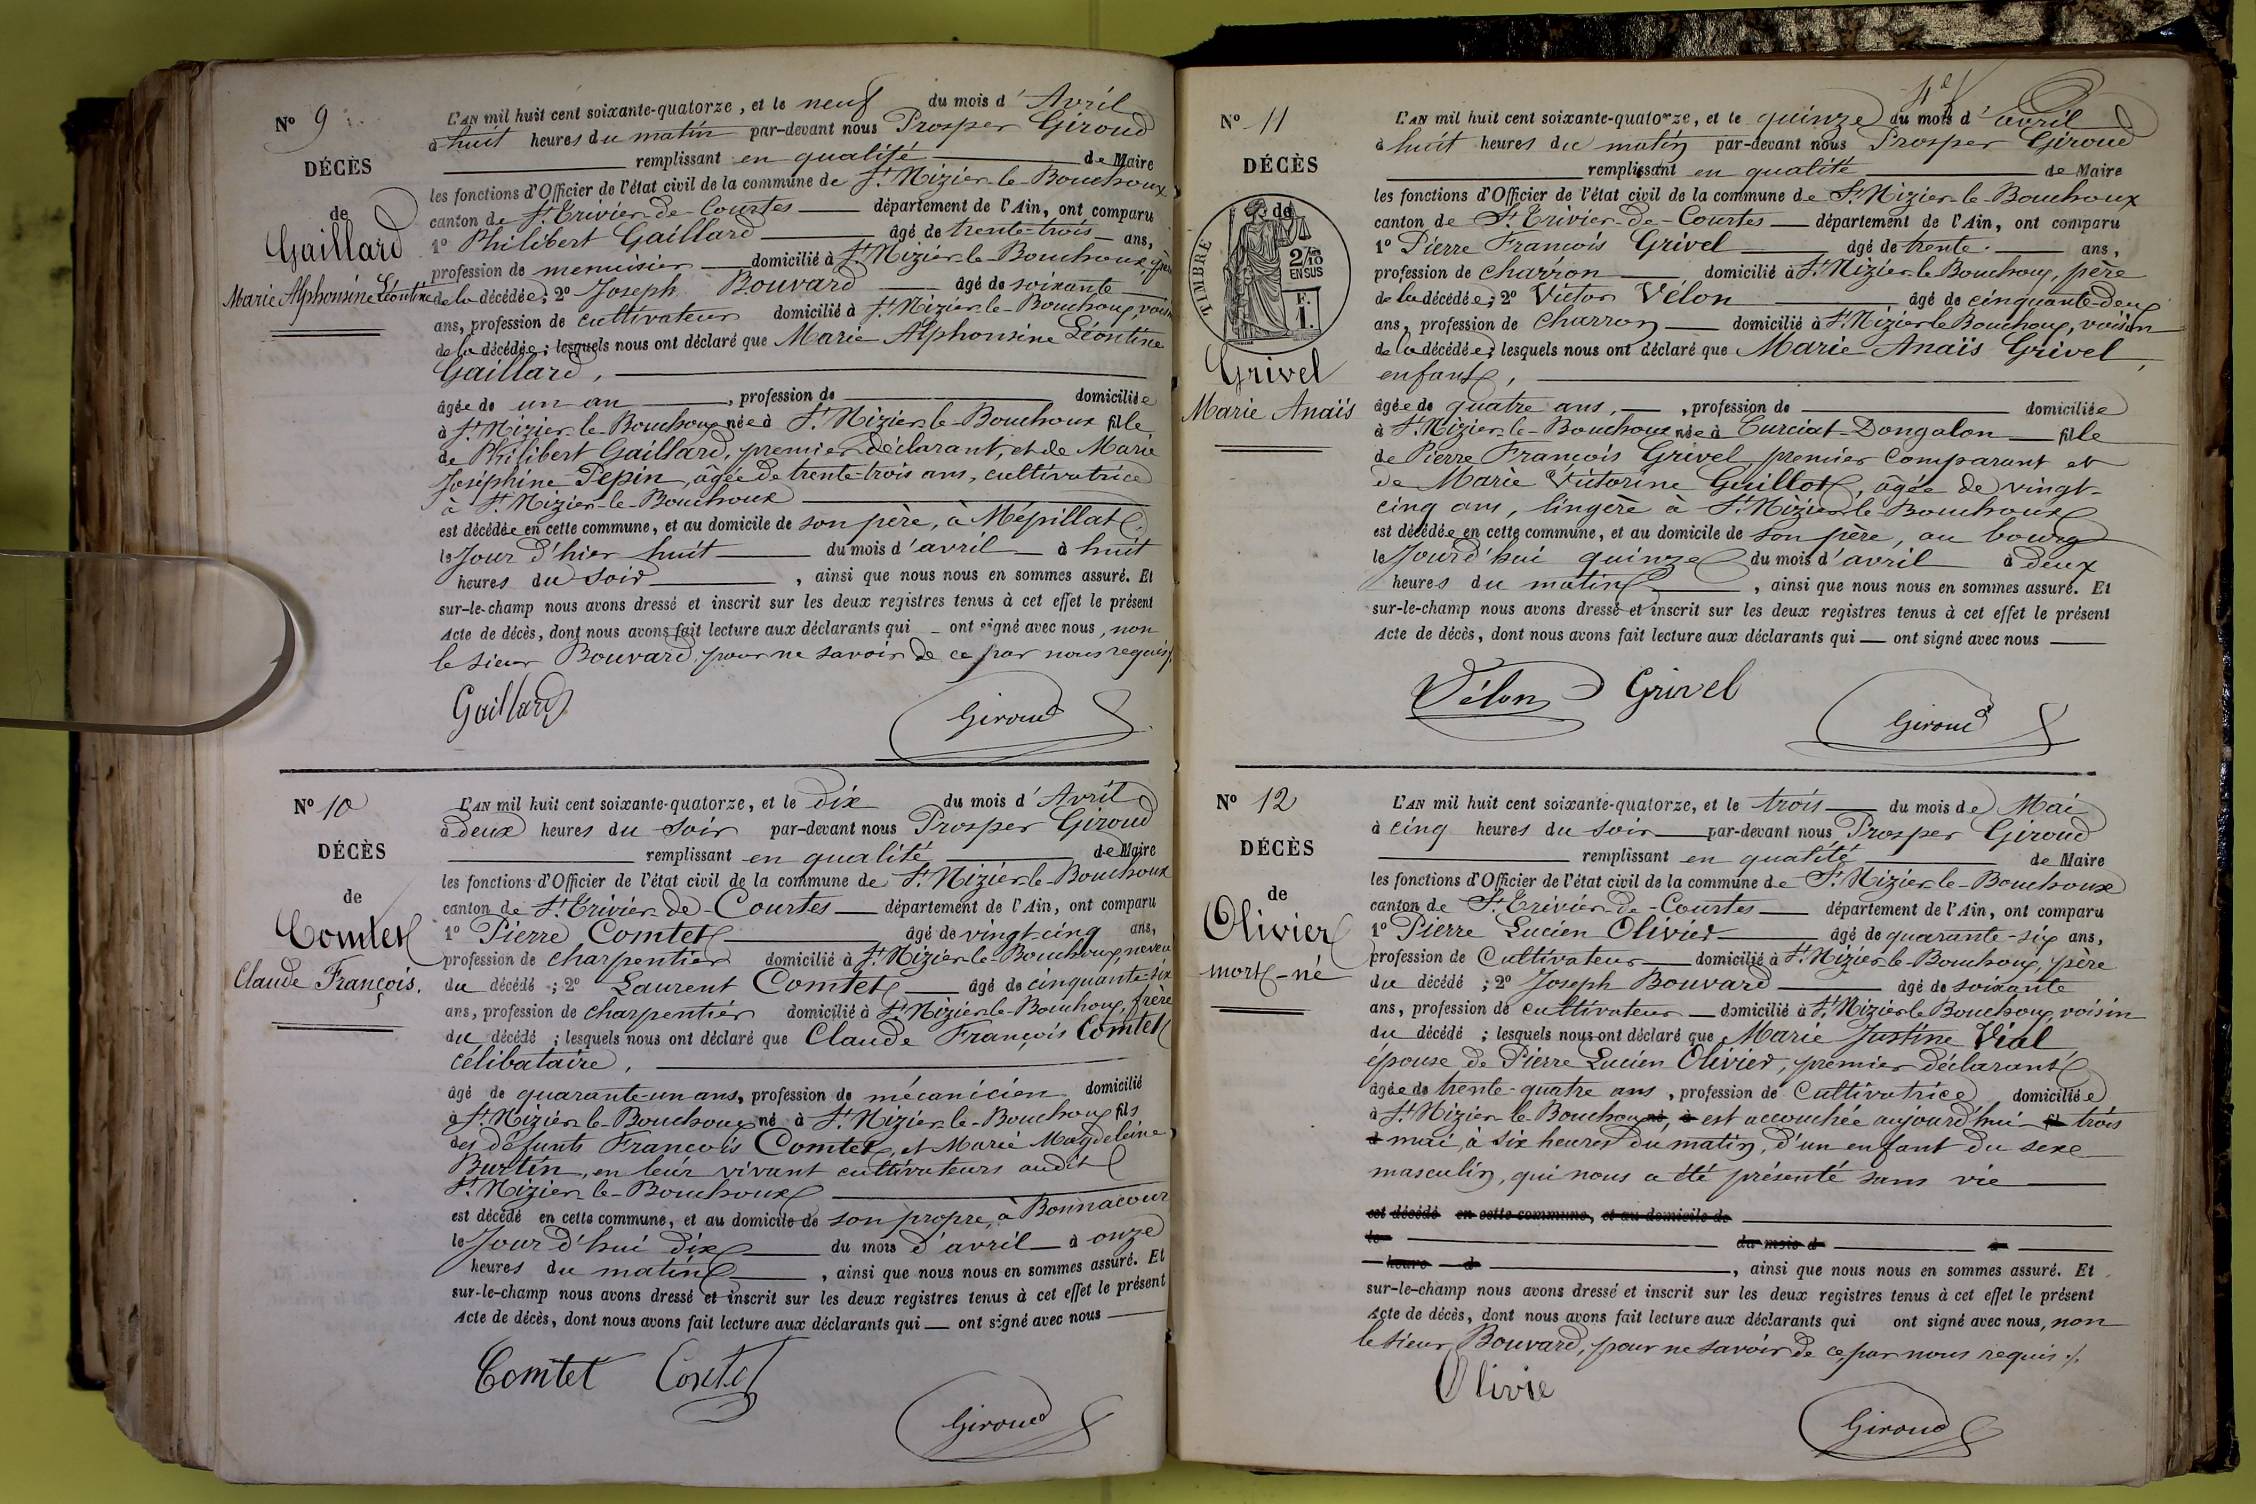 Nº 9
DÉCÈS
de
Gaillard
Marie Alphonsine Léontine
L'AN mil huit cent soixante-quatorze, et le neuf du mois d'Avril
à huit heures du matin par-devant nous Prosper Giroud
remplissant en qualité de Maire
les fonctions d'Officier de l'état civil de la commune de St. Nizier-le-Bouchoux
canton de St. Trivier-de-Courtes département de l'Ain, ont comparu
1º Philibert Gaillard âgé de trente-trois ans,
profession de menuisier domicilié à St. Nizier-le-Bouchoux, père
de la décédée; 2º Joseph Bouvard âgé de soixante
ans, profession de cultivateur domicilié à St. Nizier-le-Bouchoux, voisin
de la décédée; lesquels nous ont déclaré que Marie Alphonsine Léontine
Gaillard,
âgée de un an, profession de domiciliée
à St. Nizier-le-Bouchoux née à St. Nizier-le-Bouchoux fille
de Philibert Gaillard, premier déclarant, et de Marie
Joséphine Pepin, âgée de trente-trois ans, cultivatrice
à St. Nizier-le-Bouchoux
est décédée en cette commune, et au domicile de son père, à Mépillat,
le Jour d'hier huit du mois d'avril à huit
heures du soir, ainsi que nous nous en sommes assuré. Et
sur-le-champ nous avons dressé et inscrit sur les deux registres tenus à cet effet le présent
Acte de décès, dont nous avons fait lecture aux déclarants qui ont signé avec nous, non
le sieur Bouvard, pour ne savoir de ce par nous requis.
Gaillard Giroud
Nº 10
DÉCÈS
de
Comtet
Claude François.
L'AN mil huit cent soixante-quatorze, et le dix du mois d'Avril
à deux heures du soir par-devant nous Prosper Giroud
remplissant en qualité de Maire
les fonctions d'Officier de l'état civil de la commune de St. Nizier-le-Bouchoux
canton de St. Trivier-de-Courtes département de l'Ain, ont comparu
1º Pierre Comtet âgé de vingt cinq ans,
profession de charpentier domicilié à St. Nizier-le-Bouchoux, neveu
du décédé; 2º Laurent Comtet âgé de cinquante-six
ans, profession de charpentier domicilié à St. Nizier-le-Bouchoux, frère
du décédé; lesquels nous ont déclaré que Claude François Comtet
célibataire,
âgé de quarante-un ans, profession de mécanicien domicilié
à St. Nizier-le-Bouchoux né à St. Nizier-le-Bouchoux fils
des défunts François Comtet, et Marie Magdeleine
Burtin, en leur vivant cultivateurs audit
St. Nizier-le-Bouchoux
est décédé en cette commune, et au domicile de son propre, à Bonnacour
le Jour d'hui dix du mois d'avril à onze
heures du matin, ainsi que nous nous en sommes assuré. Et
sur-le-champ nous avons dressé et inscrit sur les deux registres tenus à cet effet le présent
Acte de décès, dont nous avons fait lecture aux déclarants qui ont signé avec nous
Comtet Comtet
Giroud
Nº 11
DÉCÈS
de
TIMBRE
2/10
EN SUS
F.
1.
Grivel
Marie Anaïs
L'AN mil huit cent soixante-quatorze, et le quinze du mois d'avril
à huit heures du matin par-devant nous Prosper Giroud
remplissant en qualité de Maire
les fonctions d'Officier de l'état civil de la commune de St. Nizier-le-Bouchoux
canton de St. Trivier-de-Courtes département de l'Ain, ont comparu
1º Pierre François Grivel âgé de trente ans,
profession de charron, domicilié à St. Nizier le Bouchoux, père
de la décédée; 2º Victor Vélon âgé de cinquante-deux
ans, profession de charron domicilié à St. Nizier le Bouchoux, voisin
de la décédée; lesquels nous ont déclaré que Marie Anaïs Grivel,
enfant,
âgée de quatre ans, profession de domiciliée
à St. Nizier-le-Bouchoux née à Curciat-Dongalon fille
de Pierre François Grivel premier comparant et
de Marie Victorine Guillot, âgée de vingt-
cinq ans, lingère à St. Nizier-le-Bouchoux
est décédée en cette commune, et au domicile de son père, au bourg
le Jourd'hui quinze du mois d'avril à deux
heures du matin, ainsi que nous nous en sommes assuré. Et
sur-le-champ nous avons dressé et inscrit sur les deux registres tenus à cet effet le présent
Acte de décès, dont nous avons fait lecture aux déclarants qui ont signé avec nous
Vélon Grivel
Giroud
Nº 12
DÉCÈS
de
Olivier
mort-né
L'AN mil huit cent soixante-quatorze, et le trois du mois de Mai
à cinq heures du soir par-devant nous Prosper Giroud
remplissant en qualité de Maire
les fonctions d'Officier de l'état civil de la commune de St. Nizier-le-Bouchoux
canton de St. Trivier-de-Courtes département de l'Ain, ont comparu
1º Pierre Lucien Olivier âgé de quarante-six ans,
profession de Cultivateur domicilié à St. Nizier-le-Bouchoux, père
du décédé; 2º Joseph Bouvard âgé de soixante
ans, profession de cultivateur domicilié à St. Nizier le Bouchoux, voisin
du décédé; lesquels nous ont déclaré que Marie Justine Vial
épouse de Pierre Lucien Olivier, premier déclarant
âgée de trente-quatre ans, profession de Cultivatrice domiciliée
à St. Nizier le Bouchoux né, à est accouchée aujourd'hui fil trois
d mai, à six heures du matin, d'un enfant du sexe
masculin, qui nous a été présenté sans vie
est décédé en cette commune, et au domicile de
le du mois d à
heure d, ainsi que nous nous en sommes assuré. Et
sur-le-champ nous avons dressé et inscrit sur les deux registres tenus à cet effet le présent
Acte de décès, dont nous avons fait lecture aux déclarants qui ont signé avec nous, non
le sieur Bouvard, pour ne savoir de ce, par nous requis ./.
Olivie
Giroud